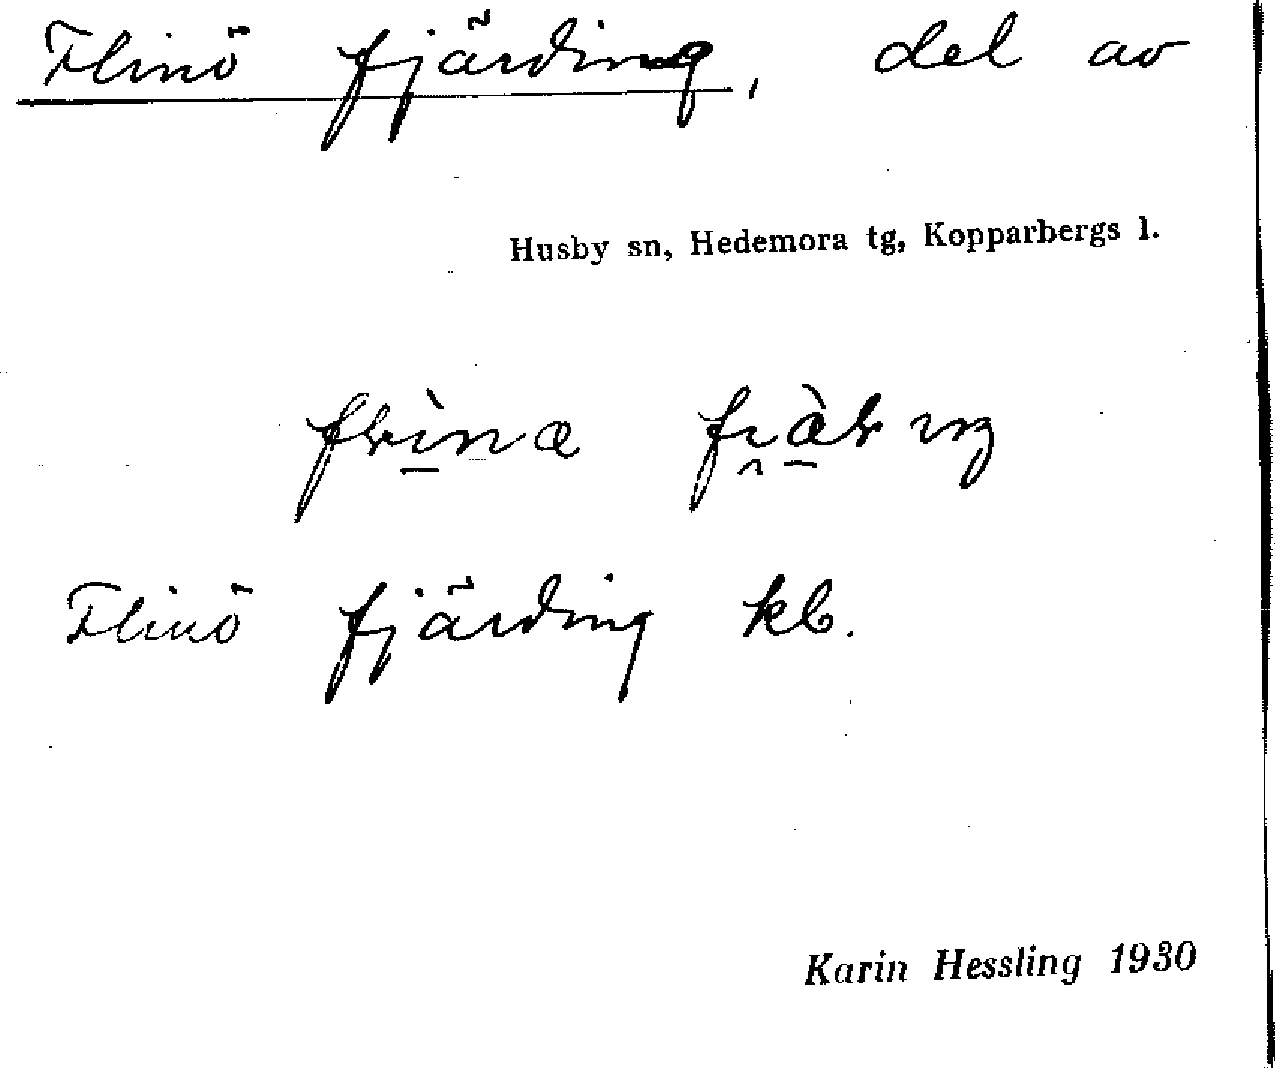 Flinö fjärding, del av
Husby sn, Hedemora tg, Kopparbergs l.
Flinö fjärding kb.
Karin Hessling 1930